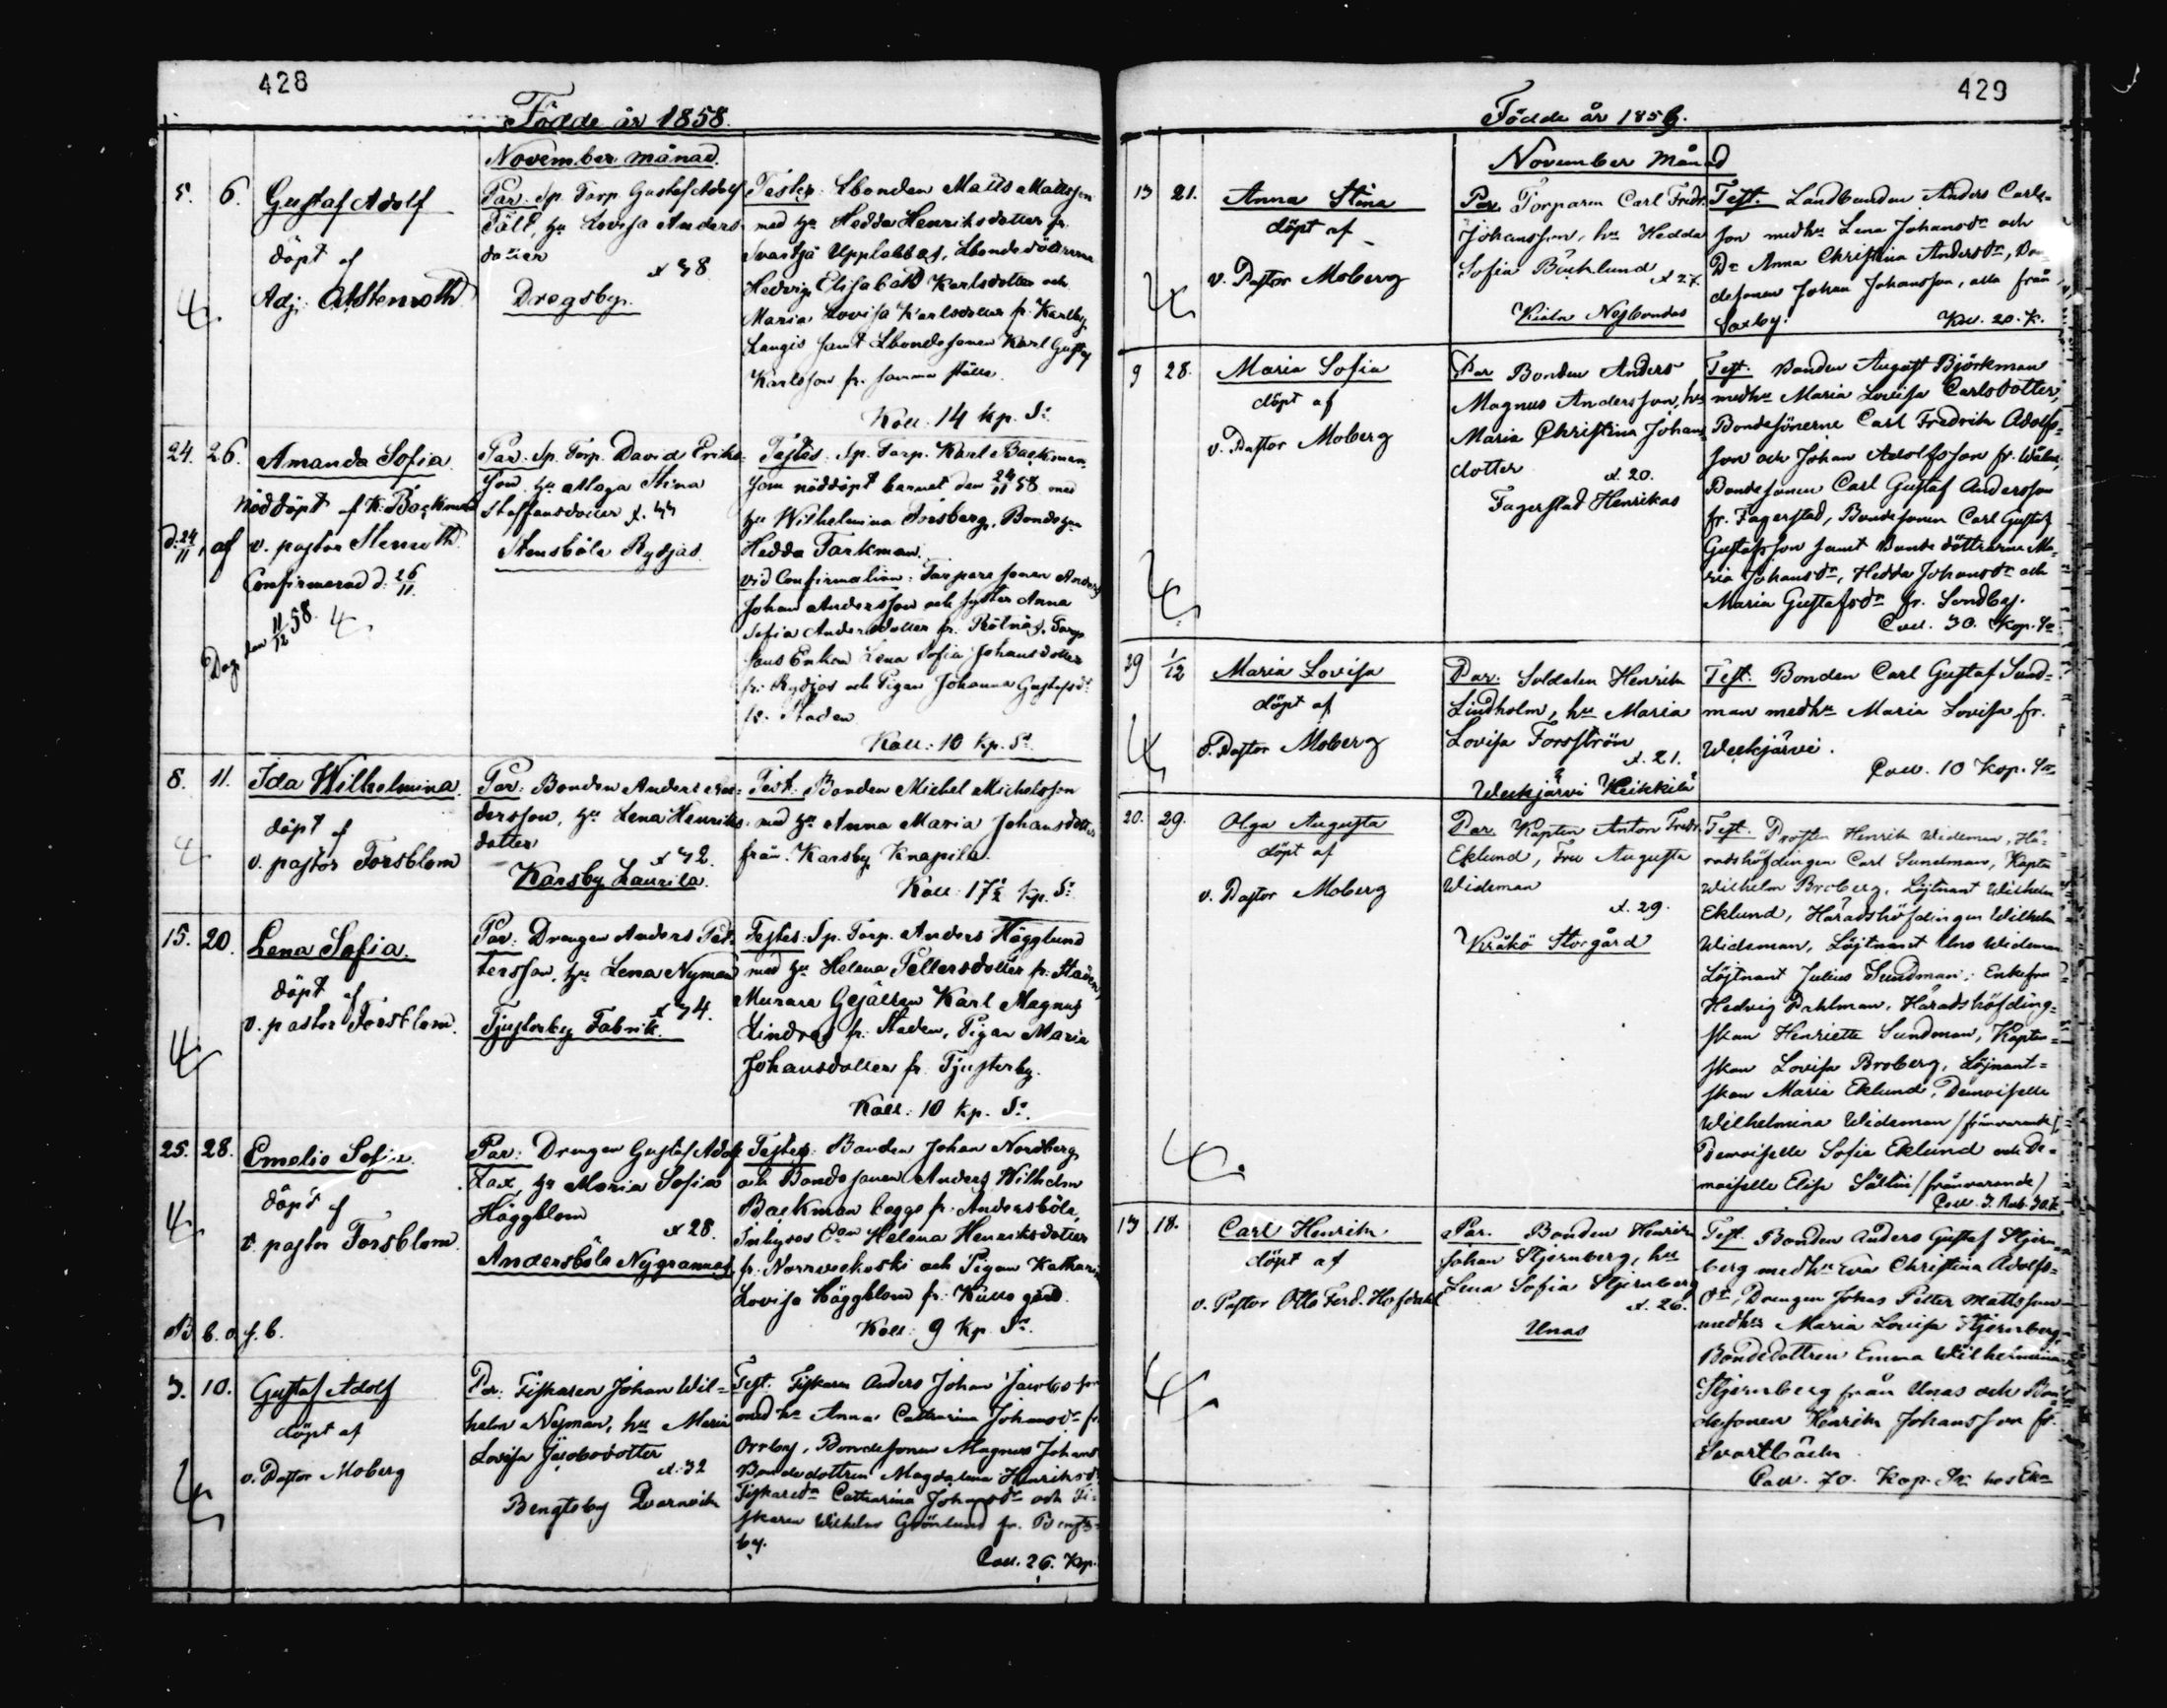 428
Födde år 1858.
November månad.
5. 6. Gustaf Adolf
döpt af
Adj. Alstenroth
Par. Sp. Torp. Gustaf Adolf
Fält, hu Lovisa Anders
dotter
Dregsby.
Testes: Lbonden Matts Mattsson
med hu Hedda Henriksdotter fr.
Svartså Upplabbas, Lbondedöttrarna
Hedvig Elisabeth Karlsdotter och
Maria Lovisa Karlsdotter fr. Karlby
Laugis samt Lbondesonen Karl Gustaf
Karlsson fr. samma ställe.
Koll: 14 kp. Sr
24. 26. Amanda Sofia.
nöddöpt af K. Backman
d. 24/11, af v. pastor Stenroth.
Confirmerad d. 26/11.
Dog den 11/12 58.
Par. Sp. Torp. David Eriks-
son, hu Maja Stina
Staffansdotter
Stensböle Rydjas.
Testes. Sp. Torp. Karl Backman,
som nöddöpt barnet den 24/11 58 med
hu Wilhelmina Forsberg, Bondehu
Hedda Tarkman.
vid Confirmation: Torpare sonen Anders
Johan Andersson och syster Anna
Sofia Andersdotter fr. Rölnäs, Torp
Enkan Lena Sofia Johansdotter
fr. Rydjas och Pigan Johanna Gustafsdr
fr. Staden
Koll: 10 kp. Sr.
8. 11. Ida Wilhelmina.
döpt af
v. pastor Forsblom
Par: Bonden Anders An-
dersson, hu Lena Henriks-
dotter
Karsby Laurila.
Test: Bonden Michel Michelsson
med hu Anna Maria Johansdotter
från Karsby Knapila.
Koll: 17½ kp. Sr
15. 20. Lena Sofia.
döpt af
v. pastor Forsblom.
Par: Drengen Anders Pet-
tersson, hu Lena Nyman
Tjusterby Fabrik.
Testes: Sp. Torp. Anders Hägglund
med hu Helena Pettersdotter fr. Staden,
Murare Gesällen Karl Magnus
Lindros fr. Staden, Pigan Maria
Johansdotter fr. Tjusterby.
Koll: 10 kp. Sr.
25. 28. Emelie Sofia.
döpt af
v. pastor Forsblom.
Par: Drengen Gustaf Adolf
Lax, hu Maria Sofia
Häggblom
Andersböle Nygrannas
Testes: Bonden Johan Nordberg
och Bondesonen Anders Wilhelm
Backman begge fr. Andersböle,
Inhyses Helena Henriksdotter
fr. Norrveckoski och Pigan Katharina
Lovisa Häggblom fr. Kullo gård.
Koll: 9 Kp. Sr.
3. 10. Gustaf Adolf
döpt af
v. Pastor Moberg
Par: Fiskaren Johan Wil-
helm Nyman, hu Maria
Lovisa Jacobsdotter
Bengtsby Qvarnvik
Test. Fiskaren Anders Johan Jacobsson
med hu Anna Catharina Johansdr fr.
Orrby, Bondesonen Magnus Johans
Bondedottren Magdalena Henriksdr
Catharina Johansdr och Fi-
skaren Wilhelm Grönlund fr. Bengts-
by.
Coll. 26. Kop.
429
Födde år 1858.
November Månad
13 21. Anna Stina
döpt af
v. Pastor Moberg
Par Torparen Carl Fredr.
Johansson, hu Hedda
Sofia Bäcklund
Test. Landbonden Anders Carls-
son med hu Lena Johansdr och
Dr Anna Christina Andersdr, Bon-
desonen Johan Johansson, alla från
Saxby.
Koll. 20. K.
9 28. Maria Sofia
döpt af
v. Pastor Moberg
Par Bonden Anders
Magnus Andersson, hu
Maria Christina Johans
dotter
Fagerstad Henrikas
Test. Bonden August Björkman
med hu Maria Lovisa Carlsdotter,
Bondesönerne Carl Fredrik Adolfs-
son och Johan Adolfsson fr.
Bondesonen Carl Gustaf Andersson
fr. Fagerstad, Bondesonen Carl Gustaf
Gustafsson samt Bonde döttrarne Ma-
ria Johansdr, Hedda Johansdr och
Maria Gustafsdr fr. Sondby.
Coll. 30. Kop. Sr
29 1/12 Maria Lovisa
döpt af
v. Pastor Moberg
Par: Soldaten Henrik
Lindholm, hu Maria
Lovisa Forsström
Weckjärvi Heikkilä
Test. Bonden Carl Gustaf Sund-
man med hu Maria Lovisa fr.
Weckjärvi.
Coll. 10 Kop. Sr
20. 29. Olga Augusta
döpt af
v. Pastor Moberg
Par. Kapten Anton Fredr.
Eklund, Fru Augusta
Wideman
Kråkö Storgård
Test. Prosten Henrik Wideman, Hä-
radshöfdingen Carl Sundman, Kapten
Wilhelm Broberg, Löjtnant Wilhelm
Eklund, Häradshöfdingen Wilhelm
Wideman, Löjtnant Uno Wideman
Löjtnant Julius Sundman; Enkefru
Hedvig Dahlman, Häradshöfding-
skan Henriette Sundman, Kapten-
skan Lovisa Broberg, Löjnant-
skan Maria Eklund, Demoiselle
Wilhelmina Wideman /frånvarande/,
Demoiselle Sofie Eklund och De-
moiselle Elise /frånvarande/
Coll. 3. Rub. 30. k
13 18. Carl Henrik
döpt af
v. Pastor Otto Ferd. Hofdahl
Par. Bonden Henrik
Johan Stjernberg, hu
Lena Sofia Stjernberg
Unas
Test. Bonden Anders Gustaf Stjern-
berg med hu Eva Christina Adolfs-
dr, Drengen Johan Petter Mattsson
med hu Maria Lovisa Stjernberg,
Bondedottren Emma Wilhelmina
Stjernberg från Unas och Bon-
desonen Henrik Johansson fr.
Svartbäck
Coll. 70. Kop.